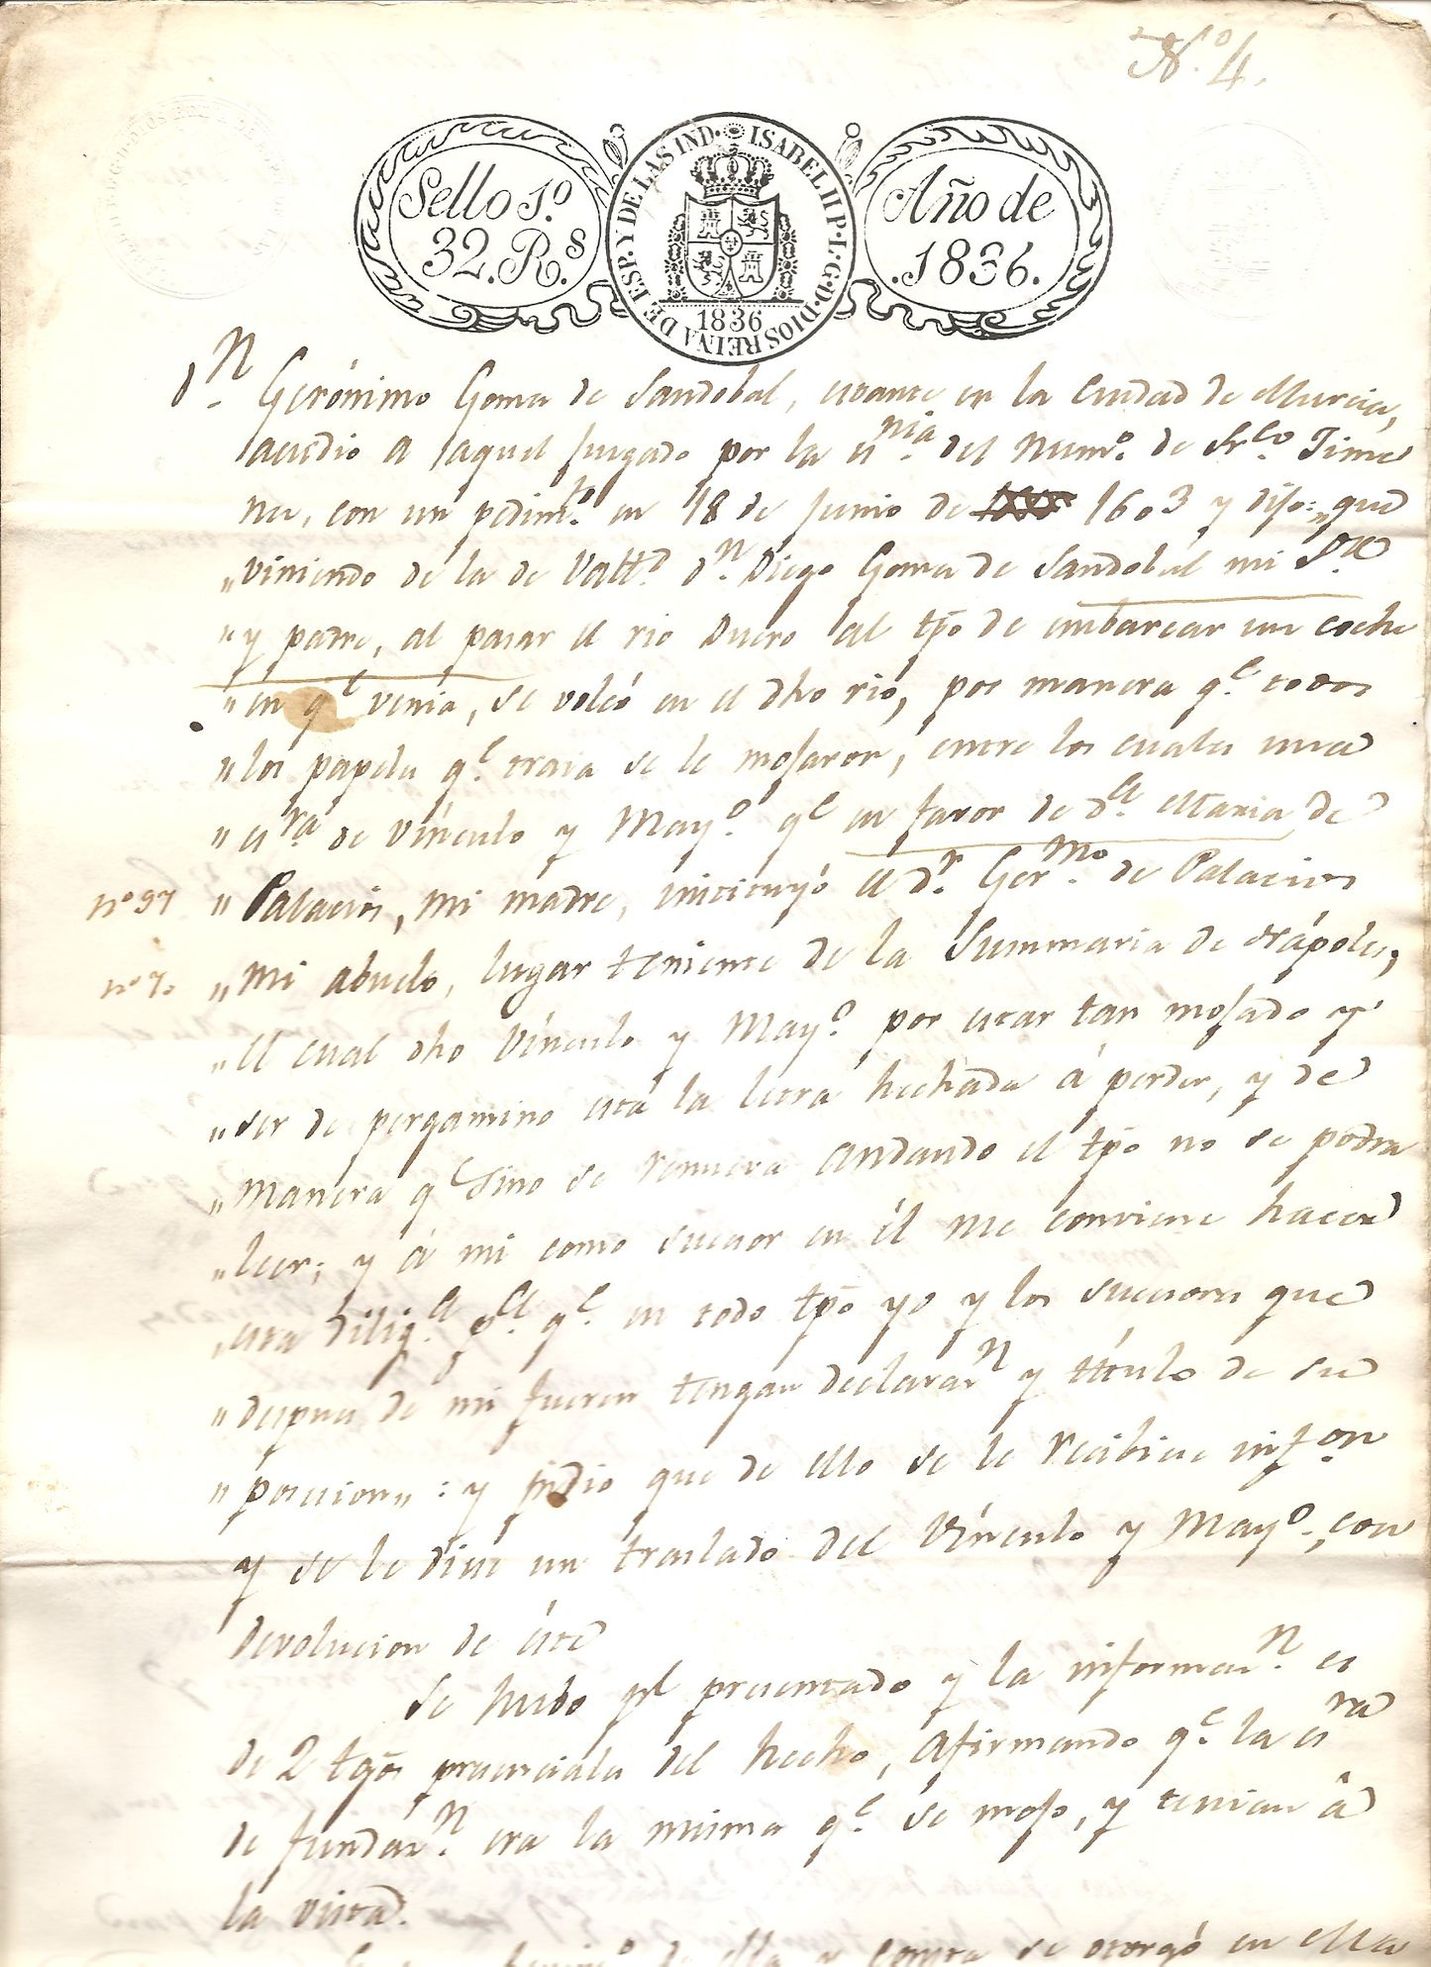 Nº 4.
Sello 1º.
32. Rs.
ISABEL II P. L. G. D. DIOS REINA DE ESP. Y DE LAS IND.
1836
Año de
.1836.
Dn. Gerónimo Goma de Sandobal, estante en la Ciudad de Murcia,
acudió a aquel juzgado por la esnia. del Numº. de Frco. Jime
nez, con un pedimto. en 18 de junio de 1603 y dijo: " que
" viniendo de la de Vallid. Dn. Diego Goma de Sandobal mi Sor.
" y padre, al pasar el rio Duero al tpõ de embarcar un coche
" en qe venia, se volcó en el dho rio, por manera qe. todos
" los papeles qe. traia se le mojaron, entre los cuales una
" esra de vínculo y Mayº. qe en favor de Da. Maria de
nº 97 " Palacios, mi madre, instituyó el Dr. Germo. de Palacios
nº 7. " mi abuelo, lugar teniente de la Summaria de Nápoles,
" el cual dho Vínculo y Mayº. por estar tan mojado y
" ser de pergamino está la letra hechada á perder, y de
" manera qe sino se renueva andando el tpõ no se podra
" leer; y á mi como sucesor en él me conviene hacer
" esta diliga. pa. qe. en todo tpõ yo y los sucesores que
" despues de mi fueren tengan declaran y título de su
" posesion " : y pidio que de ello se le recibiese infon.
y se le diese un traslado del Vínculo y Mayº., con
devolucion de éste
Se hubo pl presentado y la informan. es
de 2 tgõs presenciales del hecho, afirmando qe. la esra
de fundan. era la misma qe. se mojo, y tenian á
la vista.
de ella se otorgó en ella